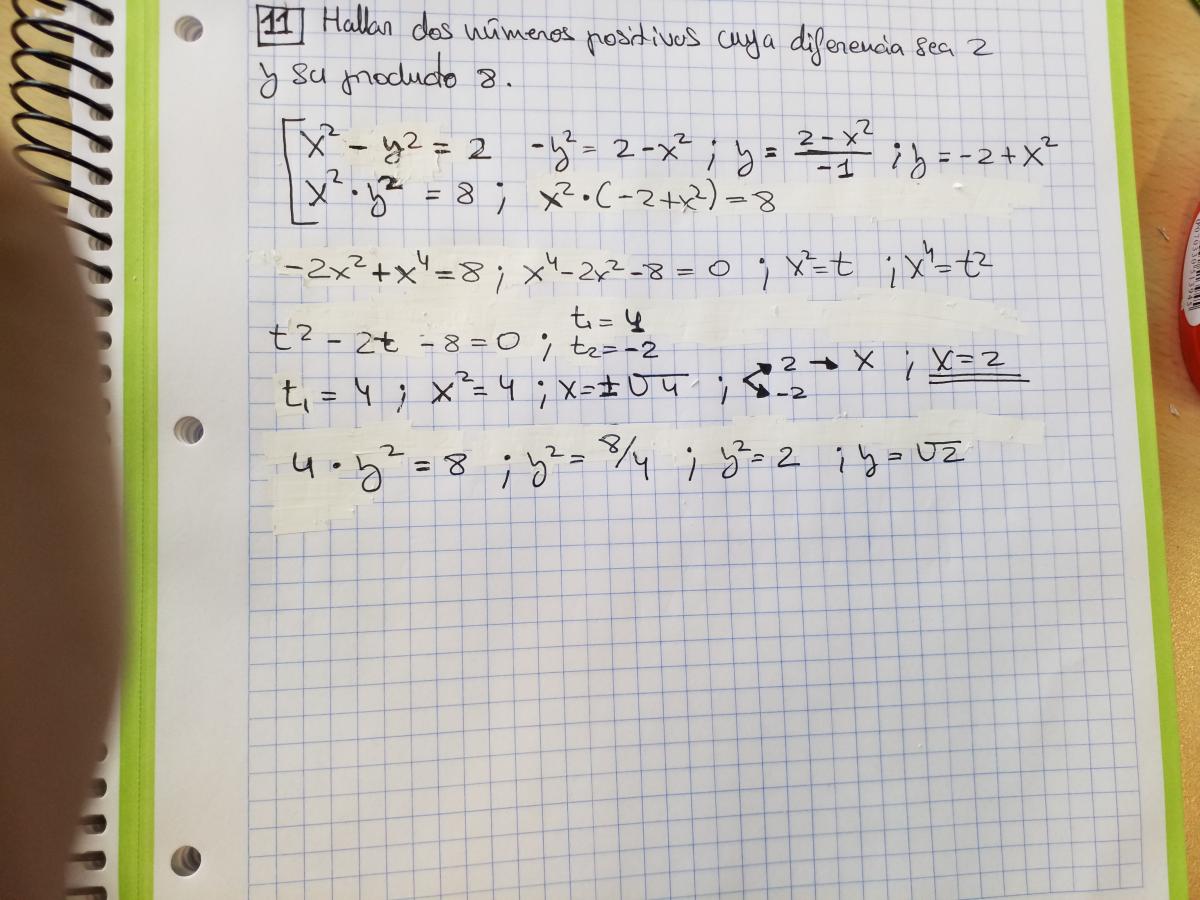 11 Hallar dos números positivos cuya diferencia sea 2
y su producto 8.
x² - y² = 2 -y² = 2 - x² ; y = (2 - x²)/-1 ; y = -2 + x²
x² · y² = 8 ; x² · (-2 + x²) = 8
-2x² + x⁴ = 8 ; x⁴ - 2x² - 8 = 0 ; x² = t ; x⁴ = t²
t² - 2t - 8 = 0 ; t₁ = 4 t₂ = -2
t₁ = 4 ; x² = 4 ; x = ±√4 ; 2 → x ; x = 2
-2
4 · y² = 8 ; y² = 8/4 ; y² = 2 ; y = √2